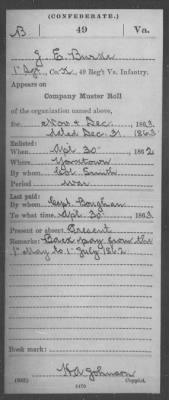 (CONFEDERATE.)
B 49 Va.
J. E. Burke
1st Sgt, Co. K, 49 Reg't Va. Infantry.
Appears on
Company Muster Roll
of the organization named above,
for Nov & Dec, 1863.
dated Dec. 31 1863
Enlisted:
When Apl 30, 1862
Where Yorktown
By whom Col Smith
Period War
Last paid:
By whom Capt.
To what time Apl 30, 1863.
Present or absent Present
Remarks: Back pay from the
1st May to 1st July 1862
Book mark:
Johnson
(642) Copyist.